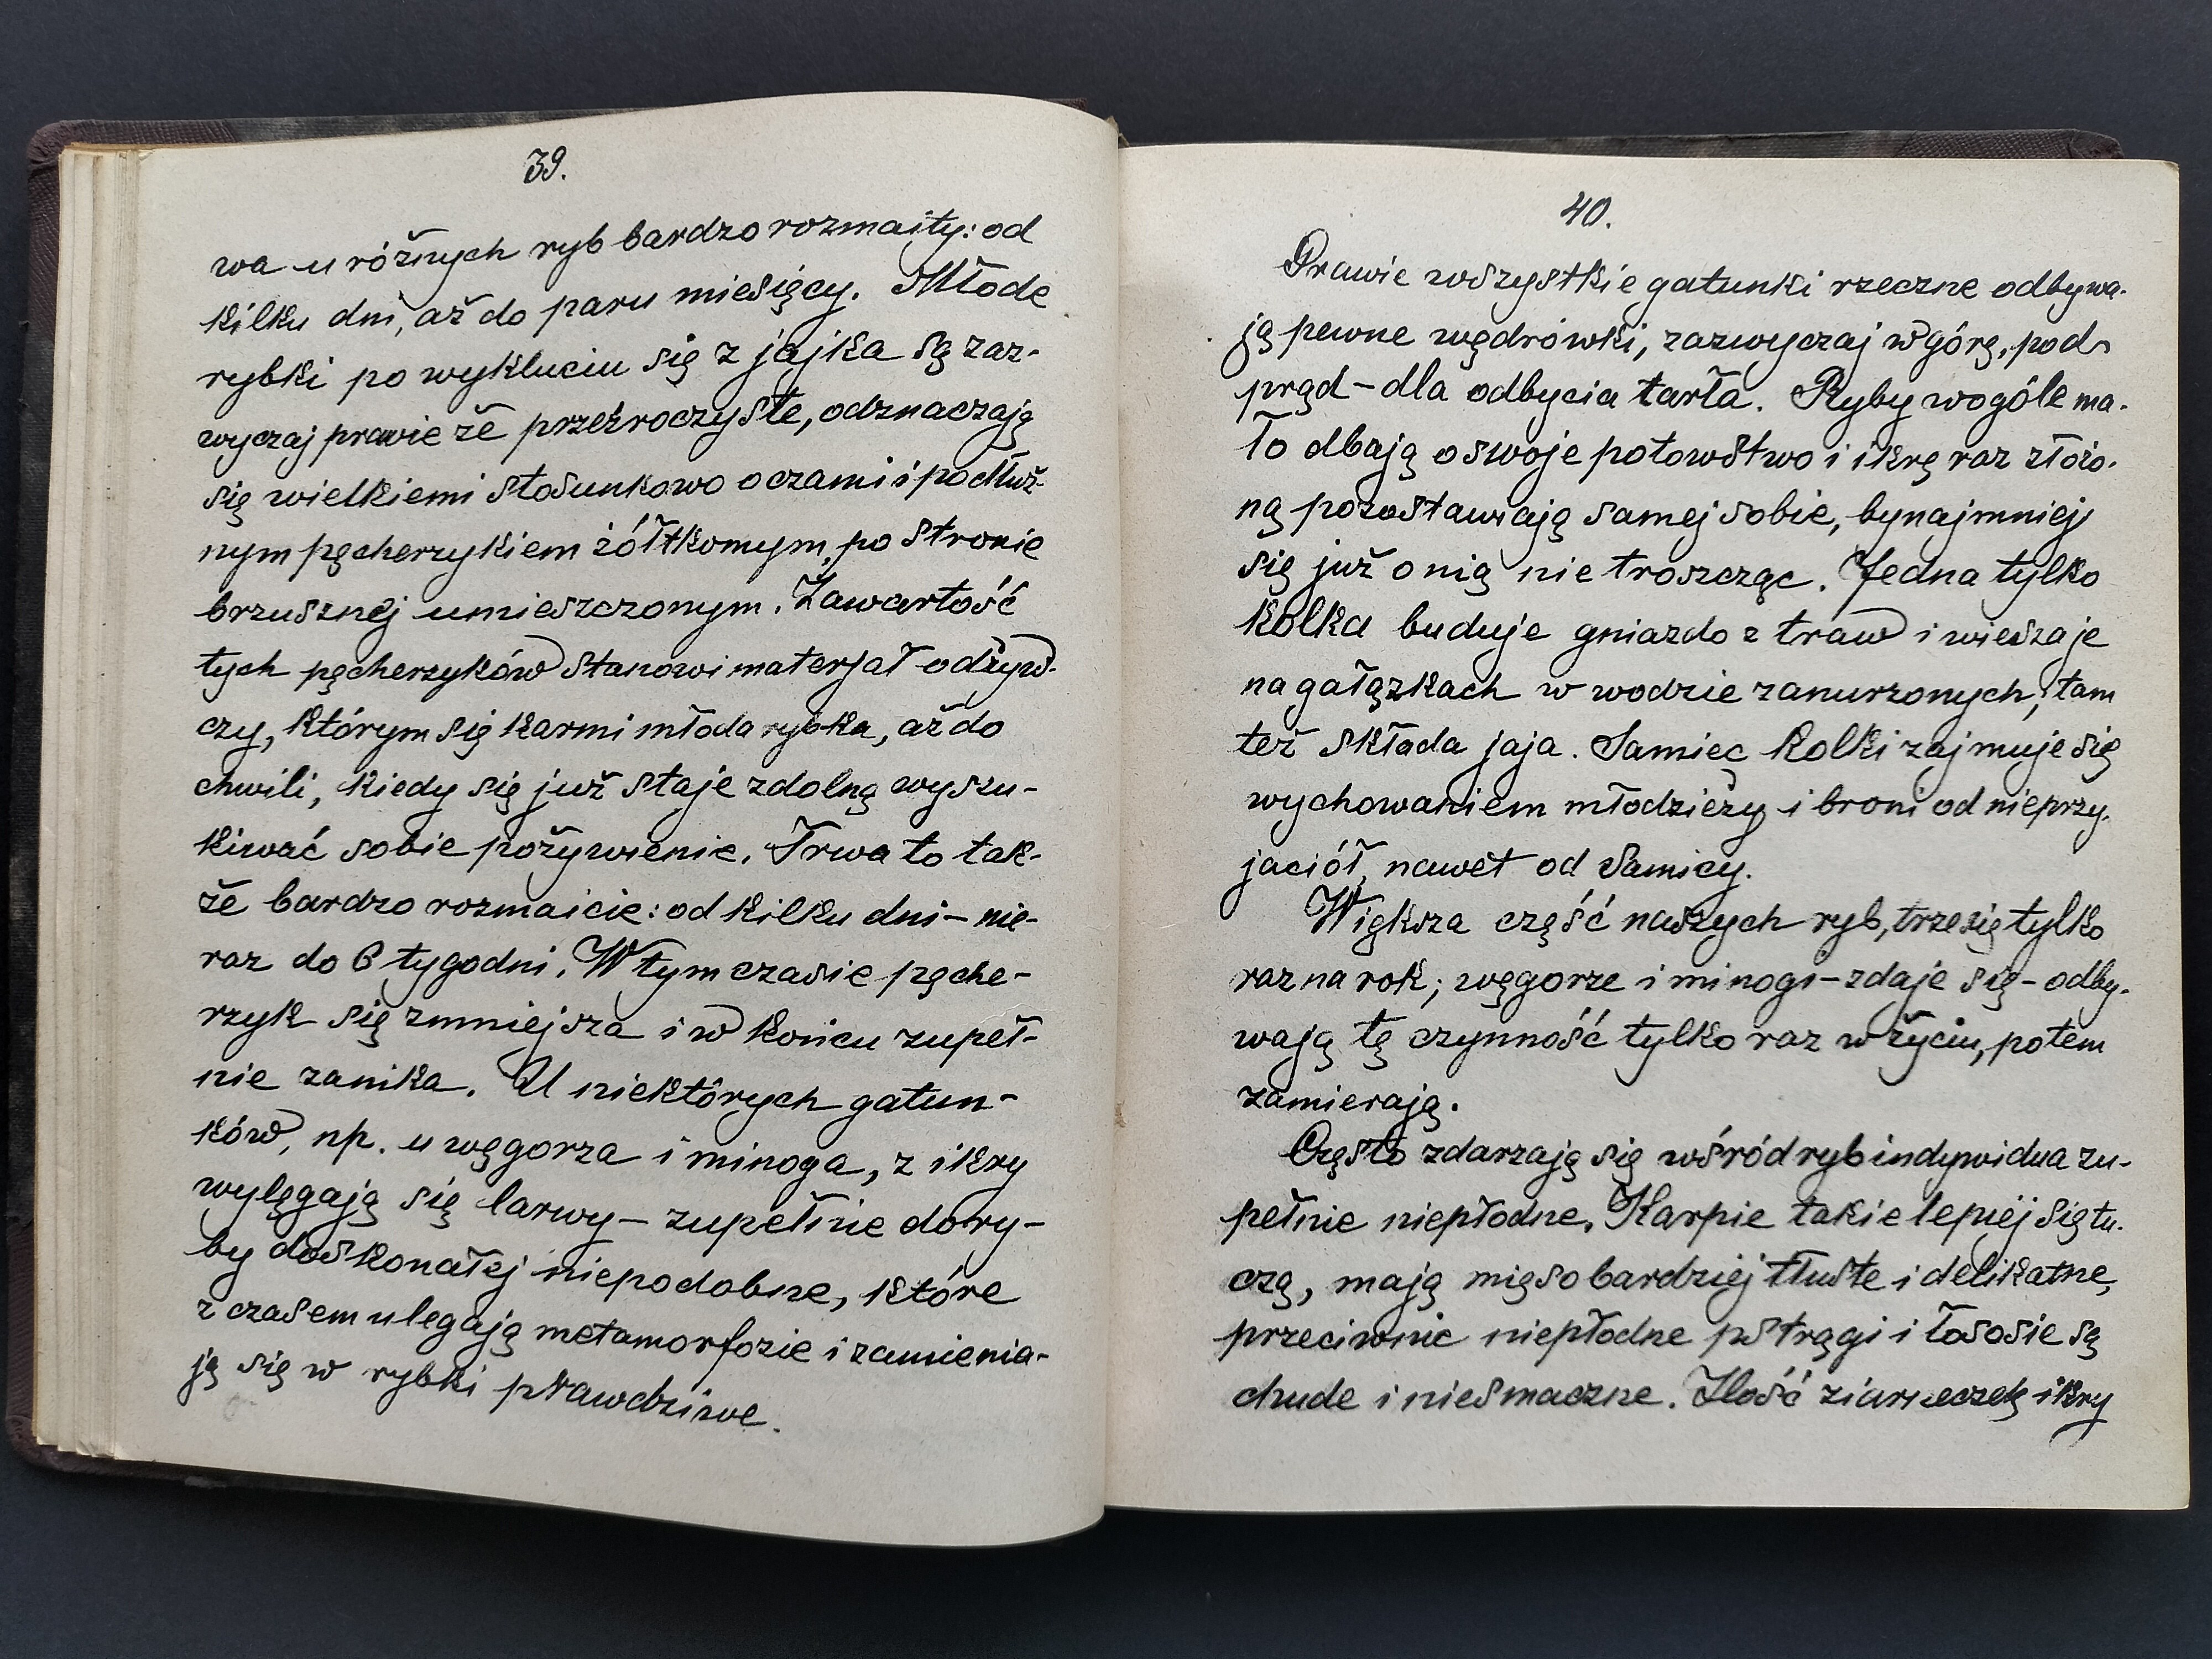 39.
wa u różnych ryb bardzo rozmaity: od
kilku dni, aż do paru miesięcy. Młode
rybki po wykluciu się z jajka są zaz-
wyczaj prawie że przeźroczyste, odznaczają
się wielkiemi stosunkowo oczami i podłuż-
nym pęcherzykiem żółtkowym, po stronie
brzusznej umieszczonym. Zawartość
tych pęcherzyków stanowi materjał odżyw-
czy, którym się karmi młoda rybka, aż do
chwili, kiedy się już staje zdolną wyszu-
kiwać sobie pożywienie. Trwa to tak-
że bardzo rozmaicie: od kilku dni – nie-
raz do 6 tygodni. W tym czasie pęche-
rzyk się zmniejsza i w końcu zupeł-
nie zanika. U niektórych gatun-
ków, np. u węgorza i minoga, z ikry
wylęgają się larwy – zupełnie do ry-
by doskonałej niepodobne, które
z czasem ulegają metamorfozie i zamienia-
ją się w rybki prawdziwe.
40.
Prawie wszystkie gatunki rzeczne odbywa-
ją pewne wędrówki, zazwyczaj w górę, pod
prąd – dla odbycia tarła. Ryby wogóle ma-
ło dbają o swoje potowstwo i ikrę raz złożo-
ną pozostawiają samej sobie, bynajmniej
się już o nią nie troszcząc. Jedna tylko
kolka buduje gniazdo z traw i wiesza je
na gałązkach w wodzie zanurzonych, tam
też składa jaja. Samiec kolki zajmuje się
wychowaniem młodzieży i broni od nieprzy-
jaciół, nawet od samicy.
Większa część naszych ryb, trze się tylko
raz na rok; węgorze i minogi – zdaje się – odby-
wają tę czynność tylko raz w życiu, potem
zamierają.
Często zdarzają się wśród ryb indywidua zu-
pełnie niepłodne. Karpie takie lepiej się tu-
czą, mają mięso bardziej tłuste i delikatne,
przeciwnie niepłodne pstrągi i łososie są
chude i niesmaczne. Ilość ziarneczek ikry